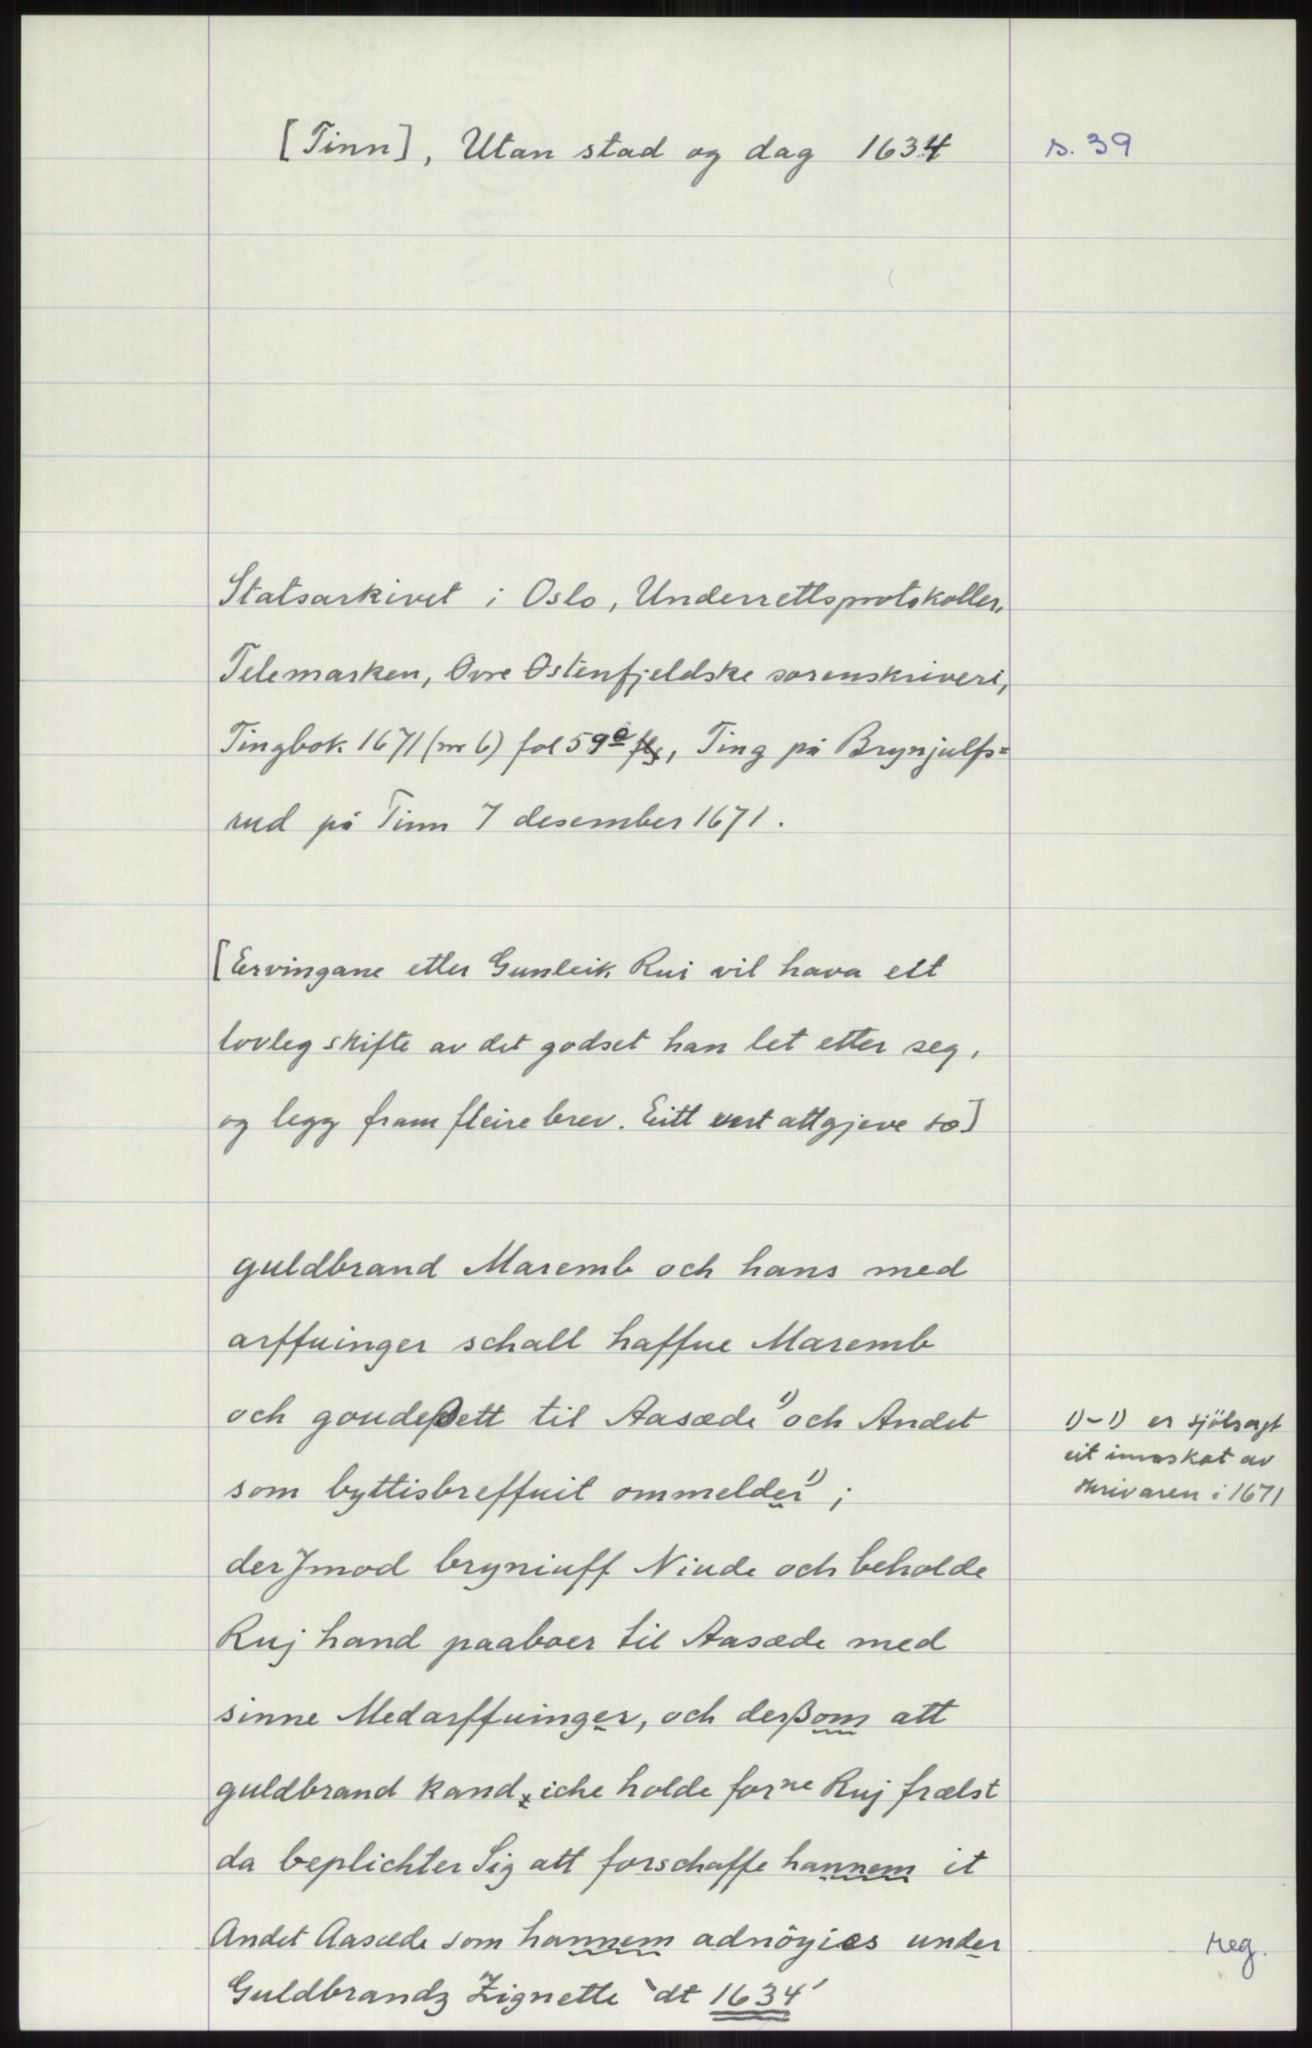 [Tinn], Utan stad og dag 1634
s. 39
Statsarkivet i Oslo, Underrettsprotokoller,
Telemarken, Øvre Østenfjeldske sorenskriveri,
Tingbok 1671 (nr 6) fol 59a, Ting på Brynjulfs=
rud på Tinn 7 desember 1671.
[Ervingane etter Gunleik Rui vil hava eit
lovleg skifte av det godset han let etter seg,
og legg fram fleire brev. Eitt vert attgjeve so]
guldbrand Maremb och hans med
arffuinger schall haffue Maremb
och goudeßett til Aasæde 1) och Andet
som byttisbreffuit ommelder 1) ;
der Jmod bryniuff Niude och beholde
Ruj hand paaboer til Aasæde med
sinne Medarffuinger, och derßom att
guldbrand kand iche holde forne Ruj frælst
da beplichter Sig att forschaffe hannem it
Andet Aasæde som hannem adnöyies under
Guldbrandz Zignette `dt 1634´
1)-1) er sjölsagt
eit innskot av
skrivaren i 1671
reg.